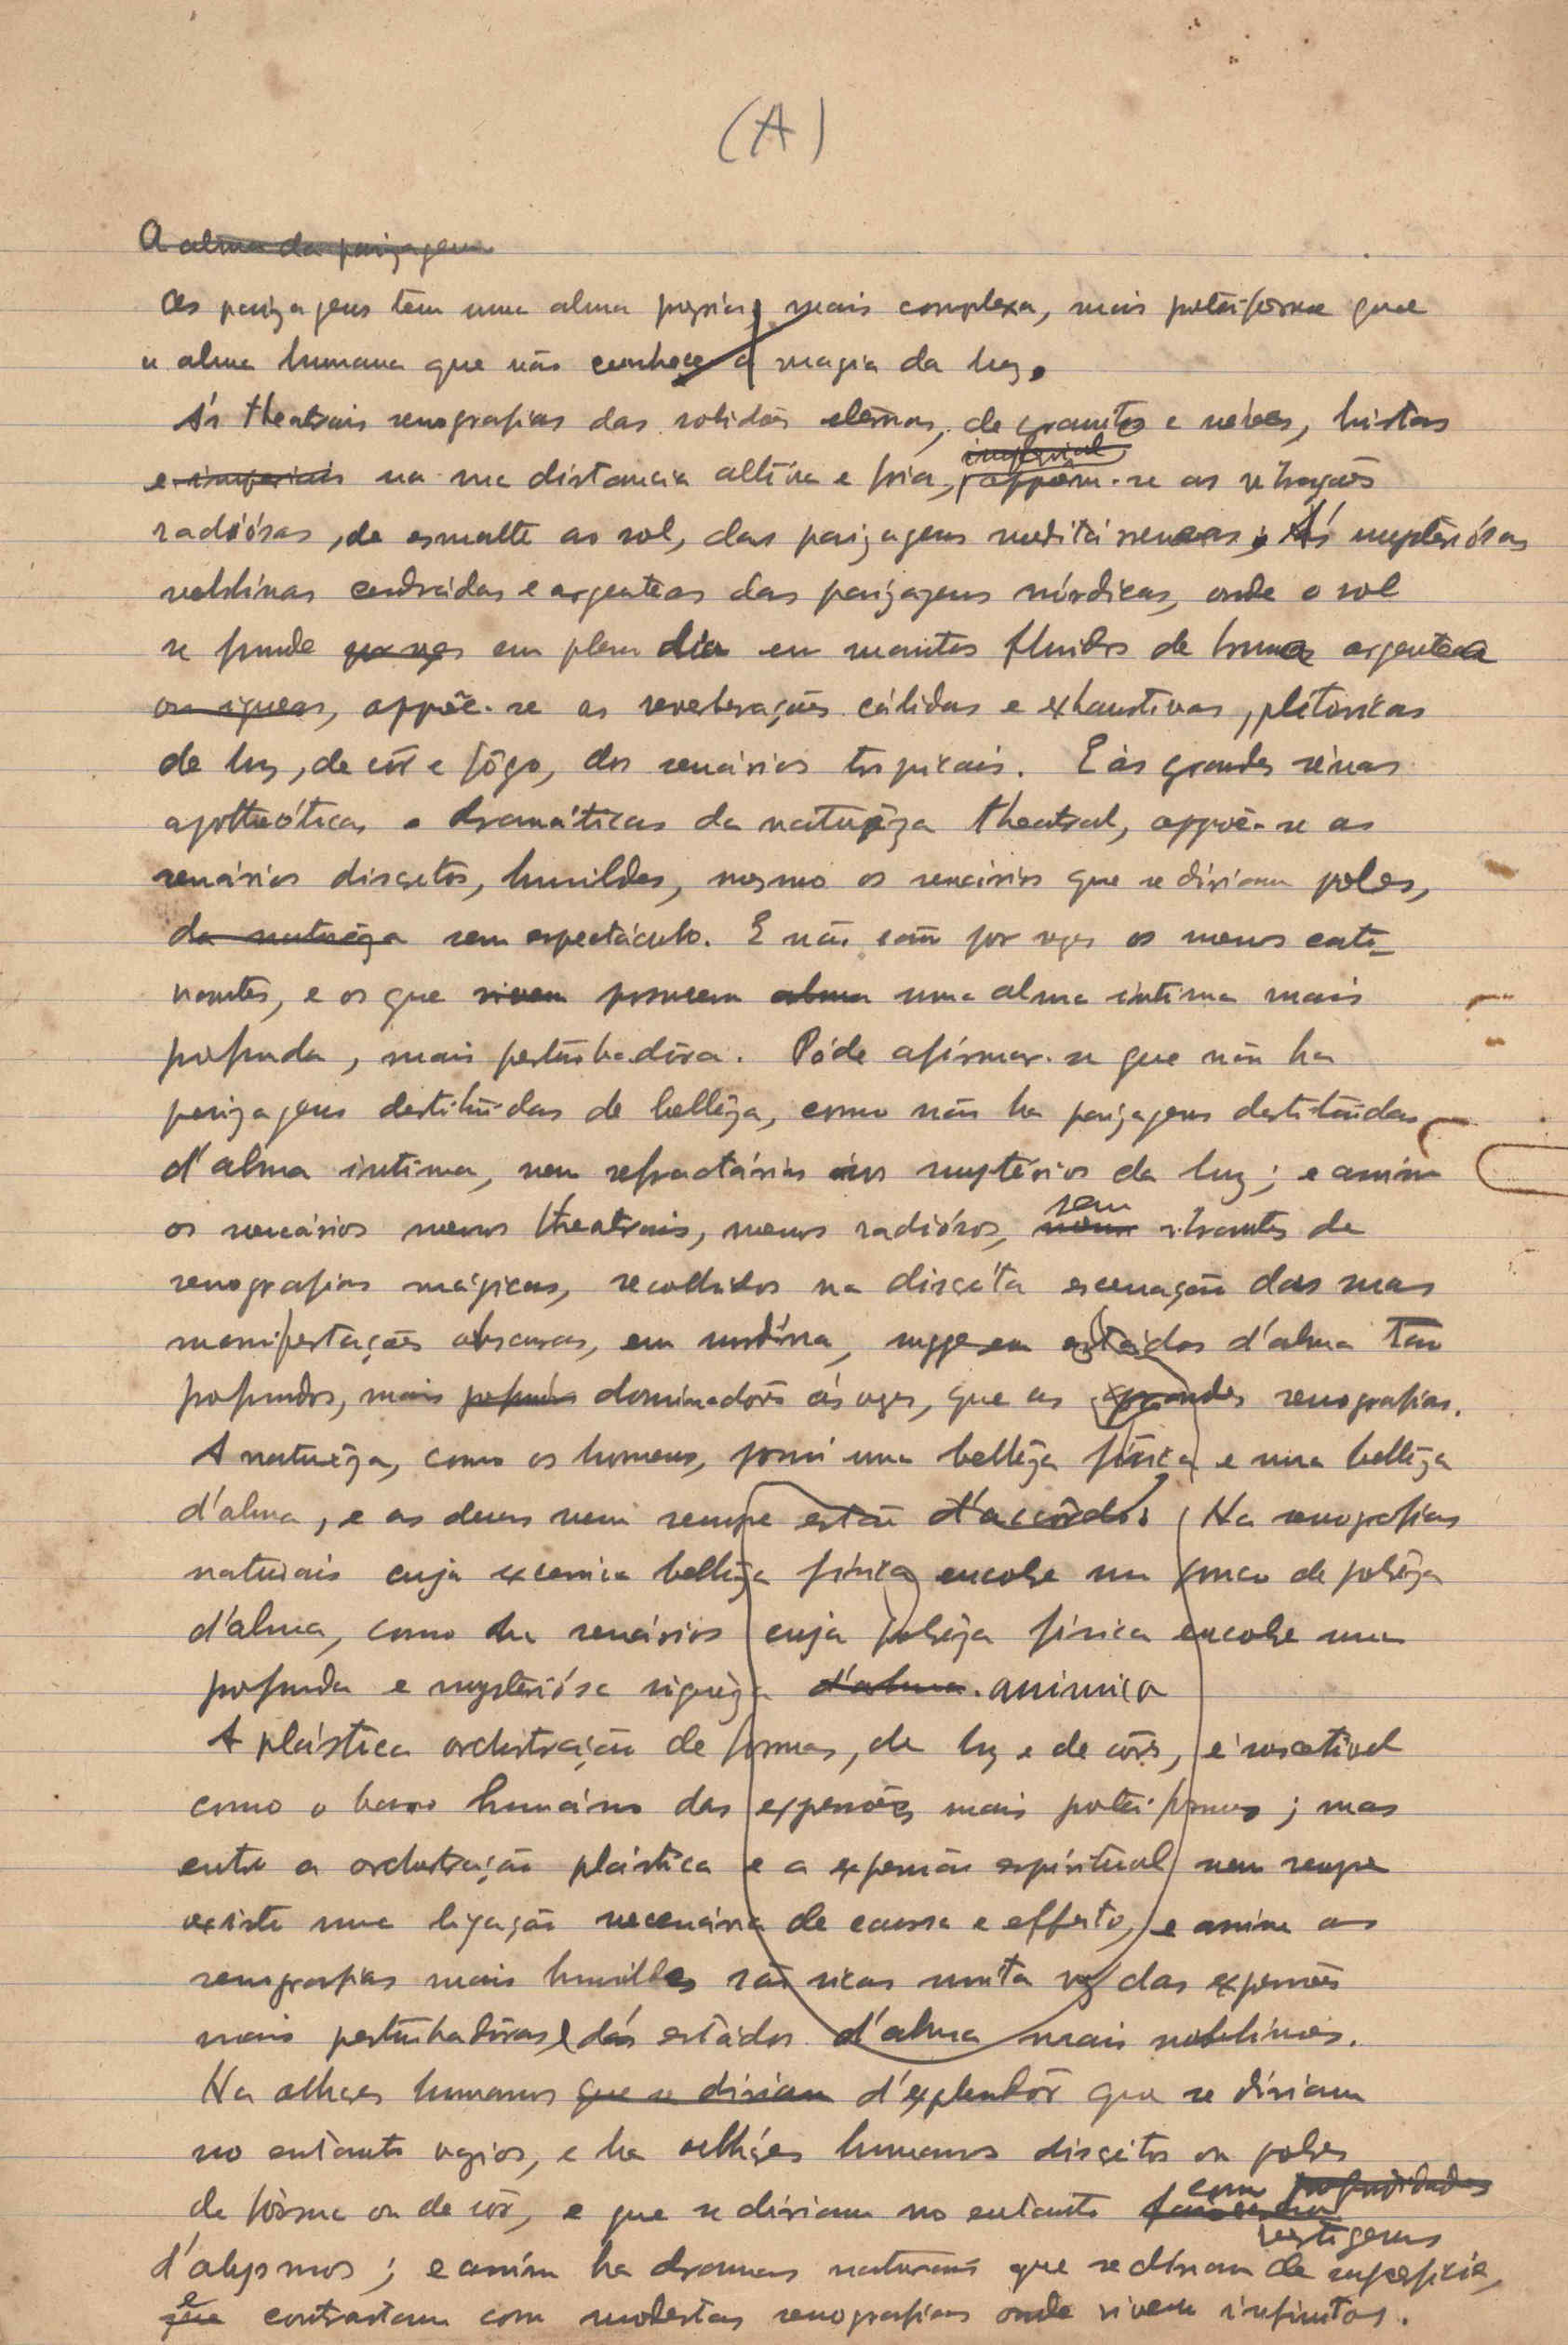 (A)
A alma da paizagem
As paizagens têm uma alma propria, mais complexa, mais poteiforme que
a alma humana que não conhece a magia da luz.
A's theatrais scenografias das solidões eternas, de granitos e neves, hirtas
e imperiais na sua distancia altiva e fria, imperial oppõem-se as vibrações
radiósas, de esmalte ao sol, das paizagens mediterraneas; A's mysteriósas
neblinas cendradas e argenteas das paizagens nórdicas, onde o sol
se funde por vezes em pleno dia em mantos fluidos de bruma argentea
ou ignea, oppõe-se as reverberações cálidas e exhaustivas, pletoricas
de luz, de côr e fôgo, dos scenários tropicais. E ás grandes scénas
apotheóticas e dramáticas da naturêza theatral, oppõe-se os
scenários discretos, humildes, mesmo os scenários que se diriam pobres,
da naturêza sem espectáculo. E não são por vezes os menos cati-
vantes, e os que vivem possuem alma uma alma intima mais
profunda, mais perturbadôra. Póde afirmar-se que não ha
paizagens destituidas de bellêza, como não ha paizagens destituidas
d'alma intima, nem refractárias aos mystérios da luz; e assim
os scenários menos theatrais, menos radiósos, nem sem vibrantes de
scenografias mágicas, recolhidos na discréta escenação das suas
manifestações obscuras, em surdina, suggerem estados d'alma tão
profundos, mais profundos dominadôres ás vezes, que as grandes scenografias.
A naturêza, como os homens, possui uma bellêza física e uma bellêza
d'alma, e as duas nem sempre estão d'accôrdo. Ha scenografias
naturais cuja excessiva bellêza física encobre um pouco de pobrêza
d'alma, como ha scenários cuja pobrêza física encobre uma
profunda e mysteriósa riquêza d'alma. animica
A plástica orchestração de formas, de luz e de côres, é suscetivel
como o barro humano das expressões mais poteiformes; mas
entre a orchestração plástica e a expressão espiritual nem sempre
existe uma ligação necessária de causa e effeito, e assim as
scenografias mais humildes são ricas muita vez das expressões
mais perturbadôras e dos estádos d'alma mais sublimes.
Ha olhares humanos que se diriam d'explendôr que se diriam
no entanto vazios, e ha olháres humanos discrétos ou pobres
de fórma ou de côr, e que se diriam no entanto com profundidades
vertigens
d'abysmos; e assim ha dramas naturais que se diriam de superficie,
e que contrastam com modestas scenografias onde vivem infinitos.